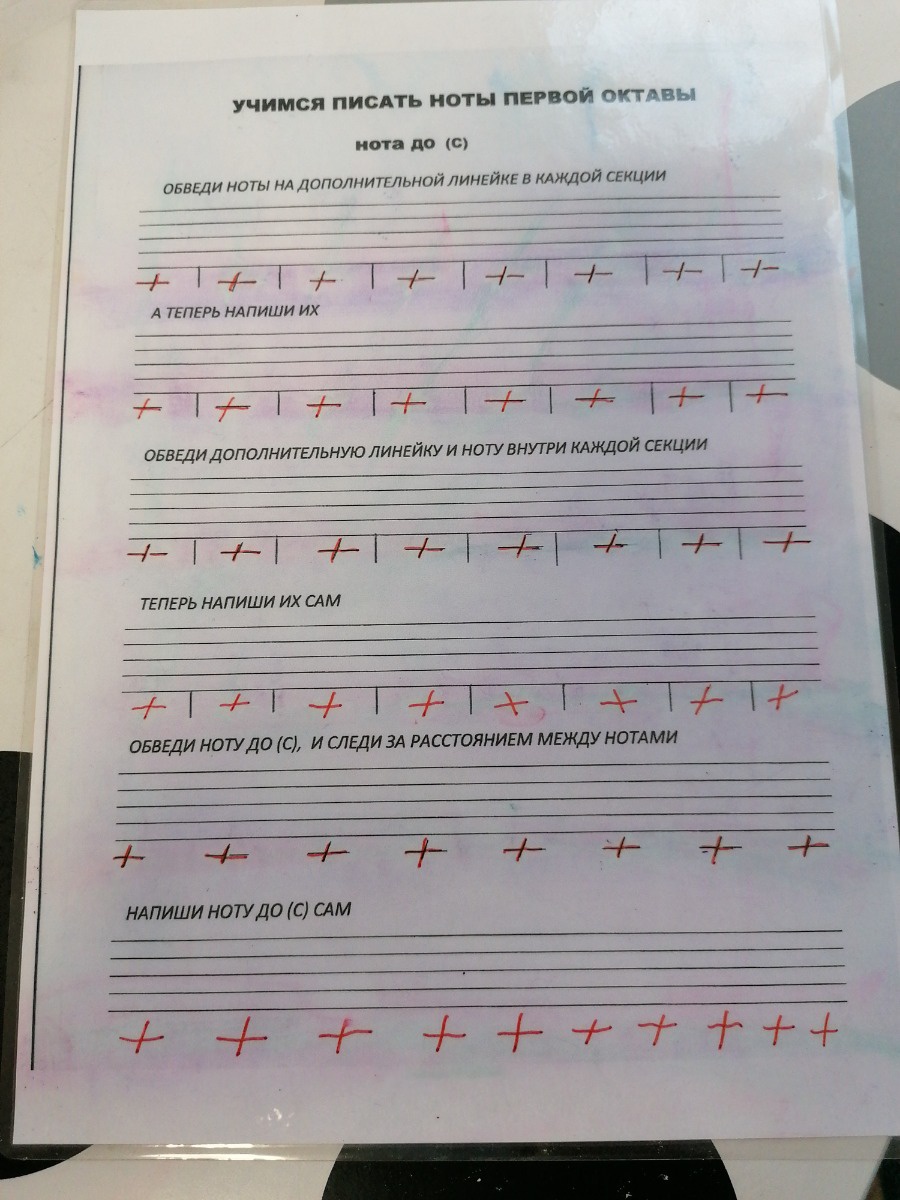 УЧИМСЯ ПИСАТЬ НОТЫ ПЕРВОЙ ОКТАВЫ
нота до (С)
ОБВЕДИ НОТЫ НА ДОПОЛНИТЕЛЬНОЙ ЛИНЕЙКЕ В КАЖДОЙ СЕКЦИИ
А ТЕПЕРЬ НАПИШИ ИХ
ОБВЕДИ ДОПОЛНИТЕЛЬНУЮ ЛИНЕЙКУ И НОТУ ВНУТРИ КАЖДОЙ СЕКЦИИ
ТЕПЕРЬ НАПИШИ ИХ САМ
ОБВЕДИ НОТУ ДО (С), И СЛЕДИ ЗА РАССТОЯНИЕМ МЕЖДУ НОТАМИ
НАПИШИ НОТУ ДО (С) САМ